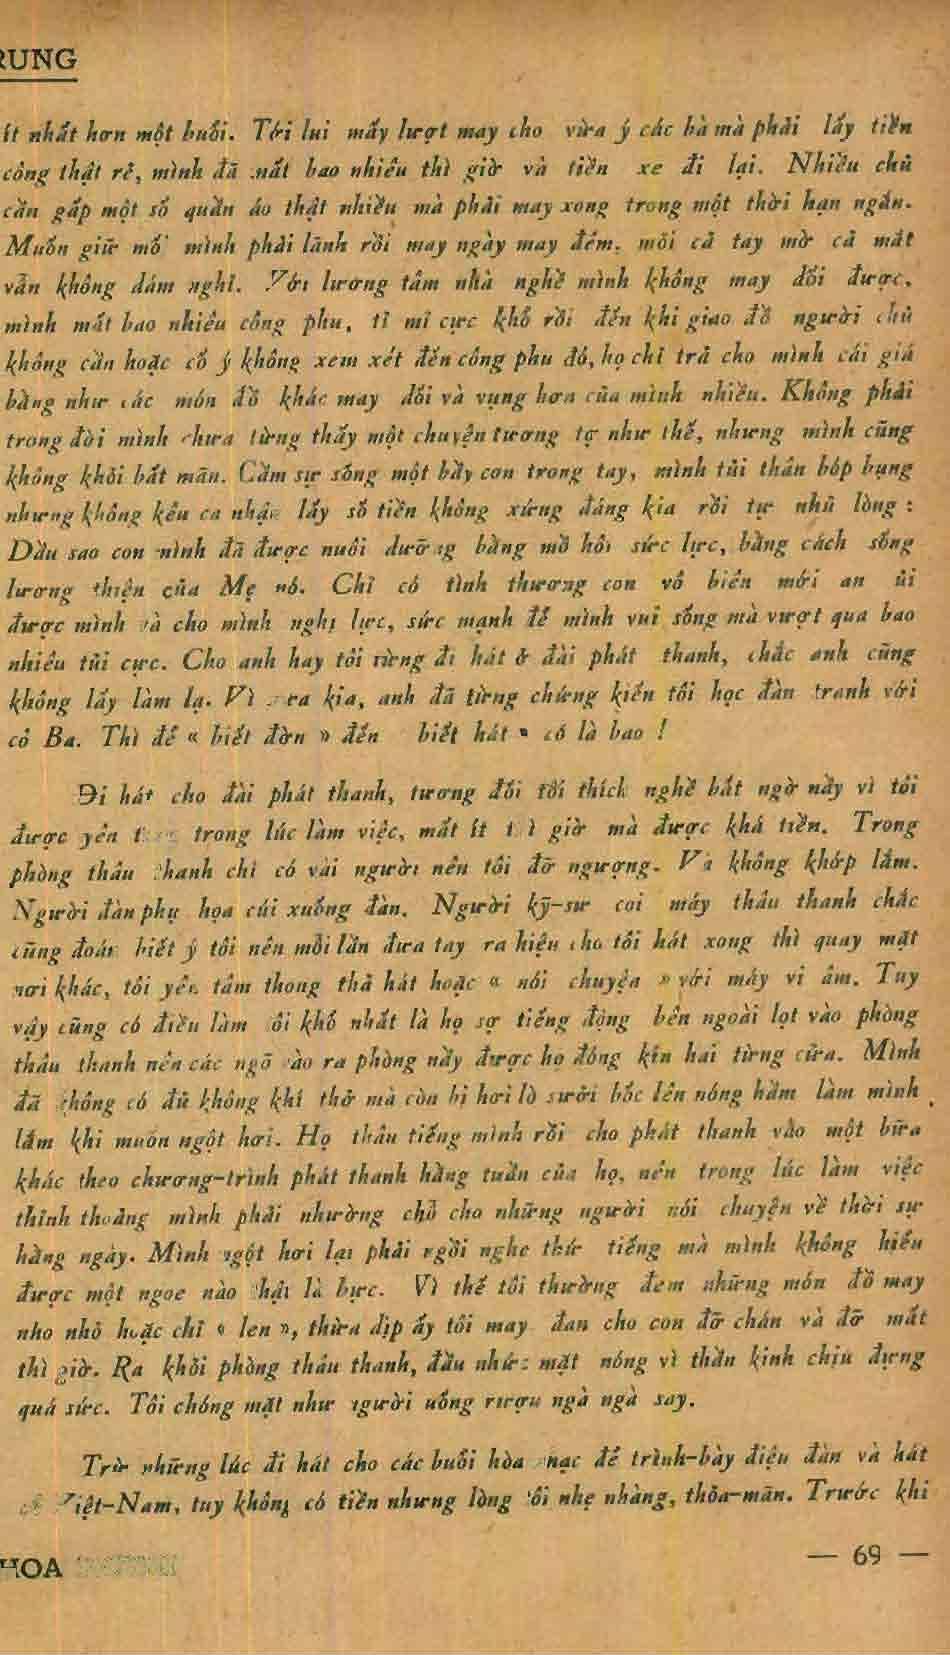 RUNG
ít nhất hơn một buổi. Tới lui mấy lượt may cho vừa ý các bà mà phải lấy tiền
công thật rẻ, mình đã mất bao nhiêu thì giờ và tiền xe đi lại. Nhiều chủ
cần gấp một số quần áo thật nhiều mà phải may xong trong một thời hạn ngắn.
Muốn giữ mối mình phải lãnh rồi may ngày may đêm, mỏi cả tay mờ cả mắt
vẫn không dám nghỉ. Với lương tâm nhà nghề mình không may dối được,
mình mất bao nhiêu công phu, tỉ mỉ cực khổ rồi đến khi giao đồ người chủ
không cần hoặc cố ý không xem xét đến công phu đó, họ chỉ trả cho mình cái giá
bằng như các món đồ khác may dối và vụng hơn của mình nhiều. Không phải
trong đời mình chưa từng thấy một chuyện tương tợ như thế, nhưng mình cũng
không khỏi bất mãn. Cầm sự sống một bầy con trong tay, mình tủi thân bóp bụng
nhưng không kêu ca nhận lấy số tiền không xứng đáng kia rồi tự nhủ lòng :
Dầu sao con mình đã được nuôi dưỡng bằng mồ hôi sức lực, bằng cách sống
lương thiện của Mẹ nó. Chỉ có tình thương con vô biên mới an ủi
được mình và cho mình nghị lực, sức mạnh để mình vui sống mà vượt qua bao
nhiêu tủi cực. Cho anh hay tôi từng đi hát ở đài phát thanh, chắc anh cũng
không lấy làm lạ. Vì xưa kia, anh đã từng chứng kiến tôi học đàn tranh với
cô Ba. Thì để « biết đờn » đến biết hát » có là bao !
Đi hát cho đài phát thanh, tương đối tôi thích nghề bất ngờ nầy vì tôi
được yên trong lúc làm việc, mất ít thì giờ mà được khá tiền. Trong
phòng thâu thanh chỉ có vài người nên tôi đỡ ngượng. Và không khớp lắm.
Người đàn phụ họa cúi xuống đàn. Người kỹ-sư coi máy thâu thanh chắc
cũng đoán biết ý tôi nên mỗi lần đưa tay ra hiệu cho tôi hát xong thì quay mặt
nơi khác, tôi yên tâm thong thả hát hoặc « nói chuyện » với máy vi âm. Tuy
vậy cũng có điều làm tôi khổ nhất là họ sợ tiếng động bên ngoài lọt vào phòng
thâu thanh nên các ngõ vào ra phòng nầy được họ đóng kín hai từng cửa. Mình
đã không có đủ không khí thở mà còn bị hơi lò sưởi bốc lên nóng hầm làm mình
lắm khi muốn ngột hơi. Họ thâu tiếng mình rồi cho phát thanh vào một bữa
khác theo chương-trình phát thanh hằng tuần của họ, nên trong lúc làm việc
thỉnh thoảng mình phải nhường chỗ cho những người nói chuyện về thời sự
hằng ngày. Mình ngột hơi lại phải ngồi nghe thứ tiếng mà mình không hiểu
được một ngoe nào thật là bực. Vì thế tôi thường đem những món đồ may
nho nhỏ hoặc chỉ « len », thừa dịp ấy tôi may đan cho con đỡ chán và đỡ mất
thì giờ. Ra khỏi phòng thâu thanh, đầu nhức mặt nóng vì thần kinh chịu đựng
quá sức. Tôi chóng mặt như người uống rượu ngà ngà say.
Trừ những lúc đi hát cho các buổi hòa nhạc để trình-bày điệu đàn và hát
cổ Việt-Nam, tuy không có tiền nhưng lòng tôi nhẹ nhàng, thỏa-mãn. Trước khi
HOA
— 69 —